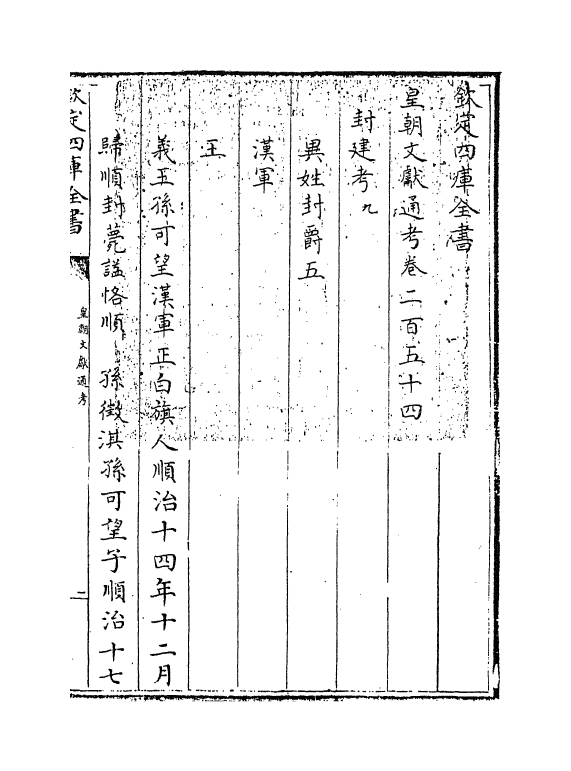 欽定四庫全書
皇朝文獻通考卷二百五十四
封建考九
異姓封爵五
漢軍
王
義王孫可望漢軍正白旗人順治十四年十二月
歸順封薨諡恪順　孫徵淇孫可望子順治十七
欽定四庫全書
皇朝文獻通考
二